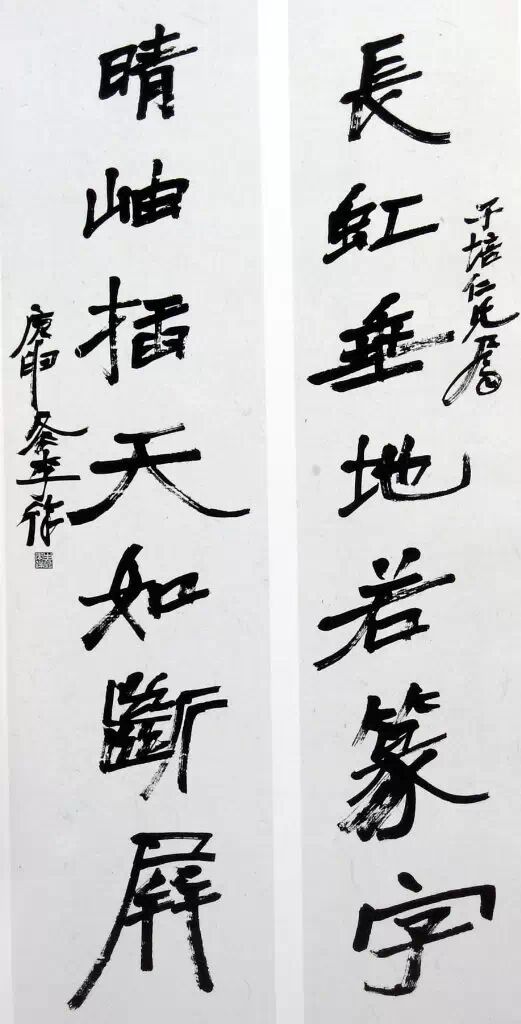 長虹垂地若篆字
子培仁兄属
晴岫插天如斷屏
庚申冬